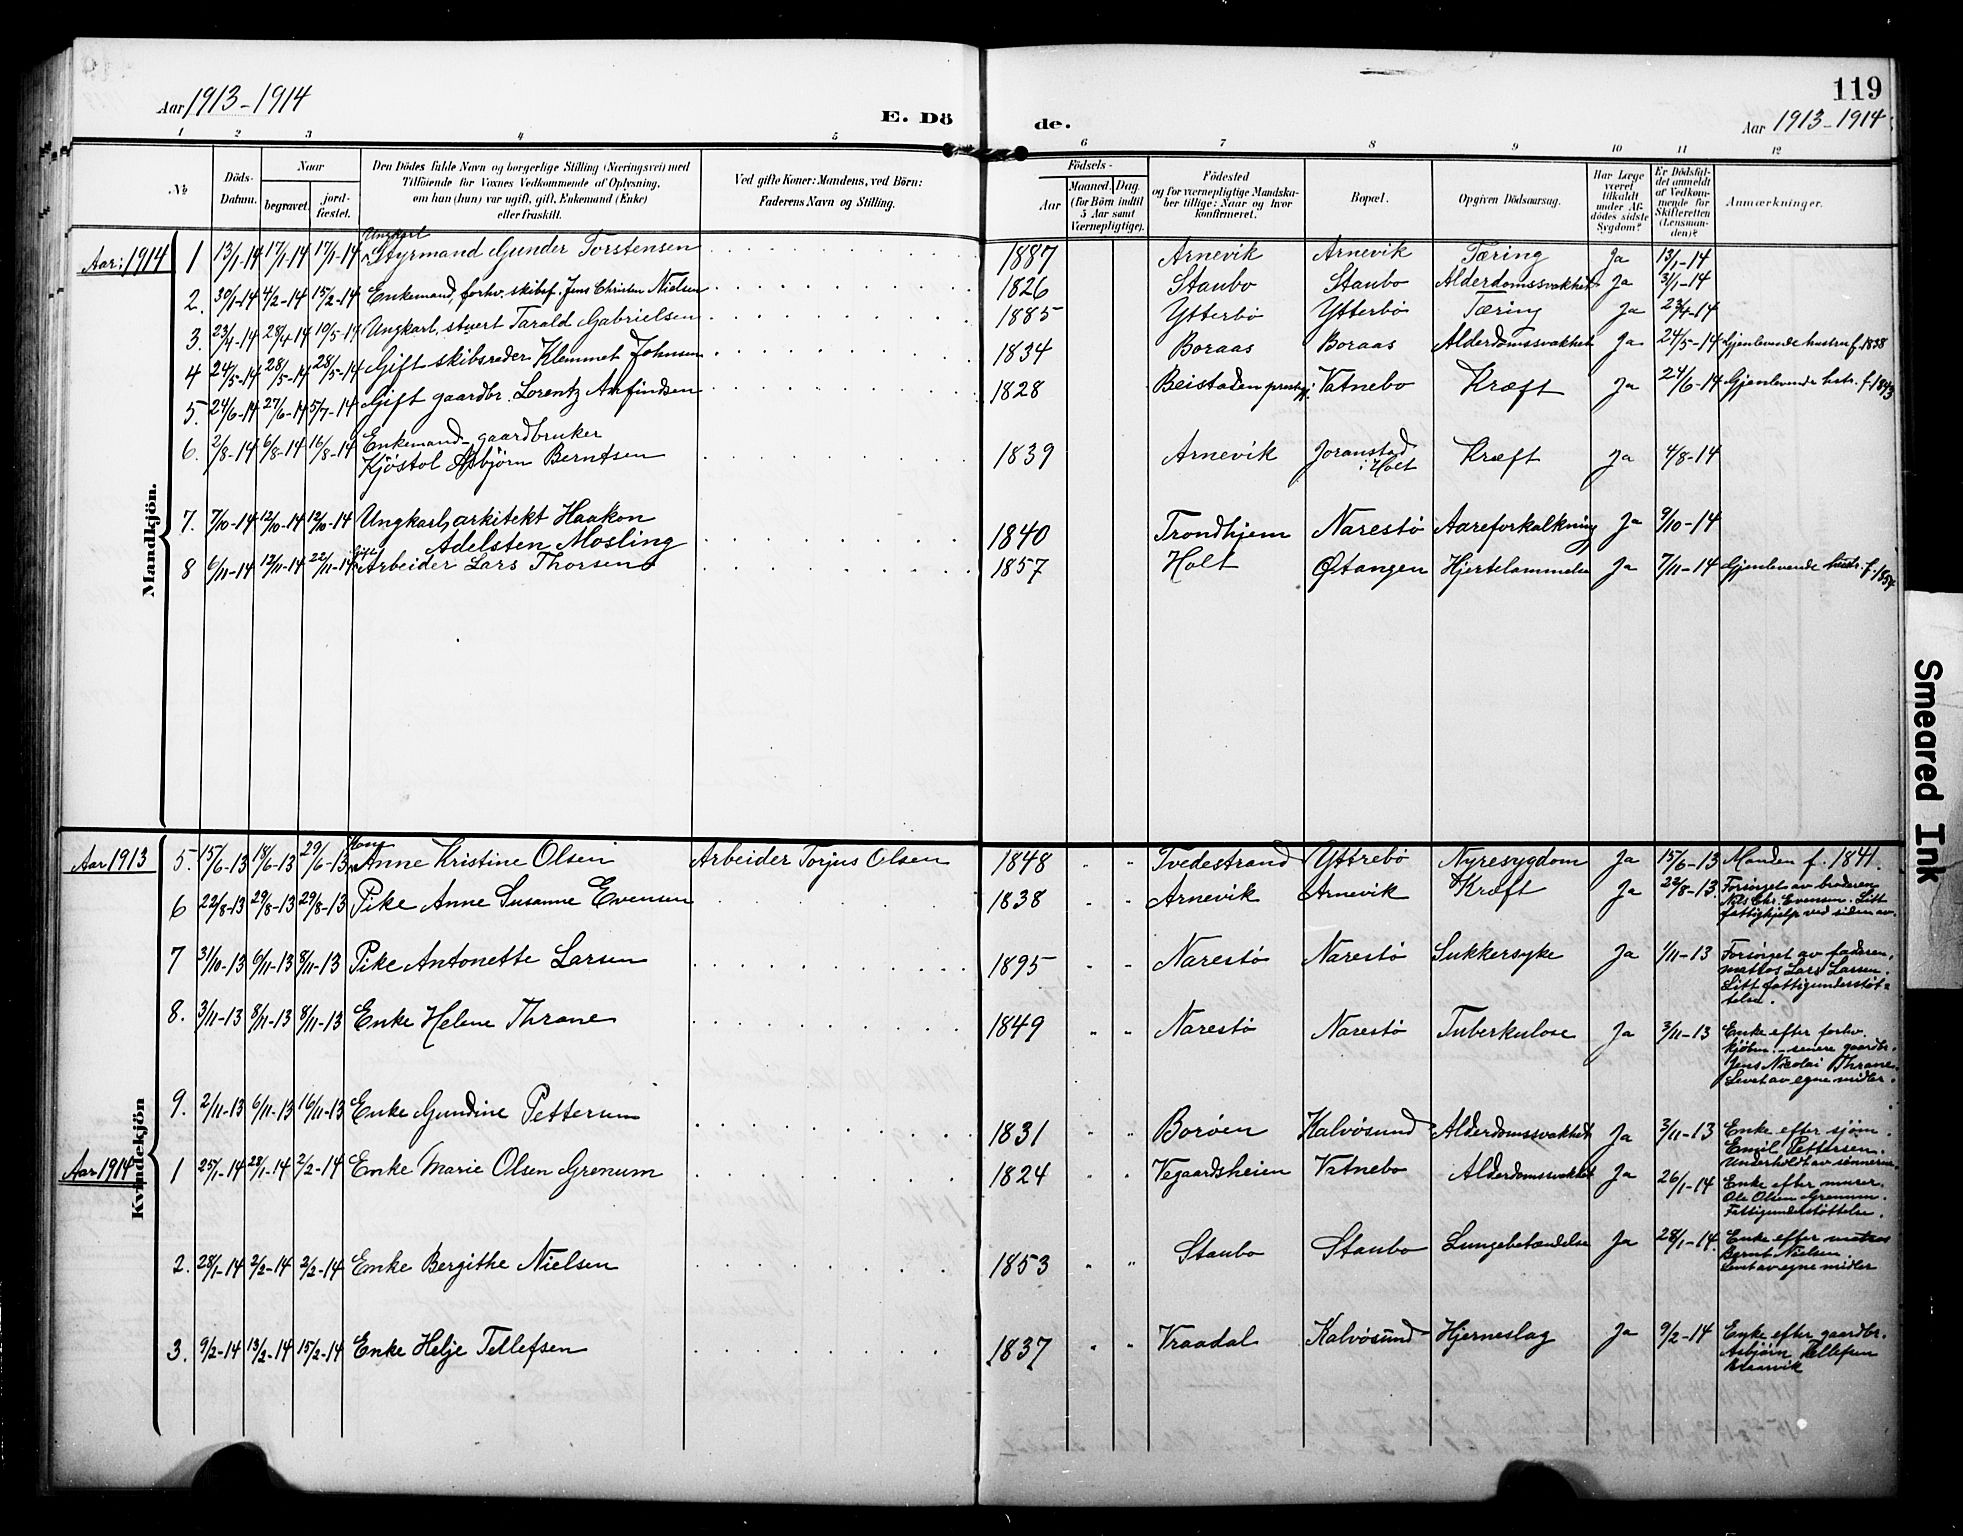 119
Aar 1913-1914
E. Dö de.
Aar 1913-1914
1 2 3 4 5 6 7 8 9 10 11 12
No
Döds-Datum.
Naar
begravet.
jordfæstet.
Den Dödes fulde Navn og borgerlige Stilling (Næringsvei) med
Tilföiende for Voxnes Vedkommende af Oplysning,
om han (hun) var ugift, gift, Enkemand (Enke)
eller fraskilt.
Ved gifte Koner: Mandens, ved Börn:
Faderens Navn og Stilling.
Födsels-
Aar
Maaned. Dag.
(for Börn indtil
5 Aar samt
Værnepligtige).
Födested
og for værnepligtige Mandskaber tillige: Naar og hvor
konfirmeret.
Bopæl.
Opgiven Dödsaarsag.
Har Læge
været
tilkaldt
under Afdödes sidste
Sygdom?
Er Dödsfaldet anmeldt
af Vedkommende for
Skifteretten
(Lensmanden)?
Anmærkninger.
Mandkjön.
Aar: 1914 1 13/1-14 17/1-14 17/1-14 Ungkarl Styrmand Gunder Torstensen 1887 Arnevik Arnevik Tæring Ja 13/1-14
2. 30/1-14 4/2-14 15/2-14 Enkemand, forhv. skibsf. Jens Christen Nielsen 1826 Staubo Staubo Alderdomssvakhet Ja 31/1-14
3. 23/4-14 28/4-14 10/5-14 Ungkarl, stuert Tarald Gabrielsen 1885 Ytterbö Ytterbö Tæring Ja 23/4-14
4 24/5-14 28/5-14 28/5-14 Gift skibsreder Klemmet Johnsen 1834 Boraas Boraas Alderdomssvakhet Ja 24/5-14 Gjenlevende hustru f. 1838
5. 24/6-14 27/6-14 5/7-14 Gift gaardbr. Lorentz Anfindsen 1828 Beistaden prestgj. Vatnebo Kræft Ja 24/6-14 Gjenlevende hstr. f. 1843
6. 2/8-14 6/8-14 16/8-14 Enkemand - gaardbruker
Kjöstol Asbjörn Berntsen 1839 Arnevik Joranstad i Holt Kræft Ja 4/8-14
7. 7/10-14 12/10-14 12/10-14 Ungkarl, arkitekt Haakon
Adelsten Mosling 1840 Trondhjem Narestö Aareforkalkning Ja 9/10-14
8 6/11-14 12/11-14 22/11-14 Gift Arbeider Lars Thorsen 1857 Holt Østangen Hjertelammelse Ja 7/11-14 Gjenlevende hustr. f. 1854
Kvindekjön
Aar 1913 5. 15/6-13 18/6-13 29/6-13 Kone Anne Kristine Olsen Arbeider Torjus Olsen 1848 Tvedestrand Yttrebö Nyresygdom Ja 15/6-13 Manden f. 1841.
6 22/8-13 29/8-13 29/8-13 Pike Anne Susanne Evensen 1838 Arnevik Arnevik Kræft Ja 22/8-13. Forsörget av broderen
Nils Chr. Evensen. Litt
fattighjelp ved siden av.
7 31/10-13 6/11-13 8/11-13 Pike Antonette Larsen 1895 Narestö Narestö Sukkersyke Ja 1/11-13 Forsörget av faderen,
matros Lars Larsen.
Litt fattigunderstöt-
telse.
8. 3/11-13 8/11-13 8/11-13 Enke Helene Thrane 1849 Narestö Narestö Tuberkulose Ja 3/11-13 Enke efter forhv.
kjöbm. - senere gaardbr.
Jens Nicolai Thrane.
Levet av egne midler.
9. 2/11-13 6/11-13 16/11-13 Enke Gundine Pettersen 1831 Boröen Kalvösund Alderdomssvakhet Ja 3/11-13 Enke efter sjöm.
Emil Pettersen.
Underholdt av sönnerne.
Aar 1914 1 25/1-14 28/1-14 2/2-14 Enke Marie Olsen Grenum 1824 Vegaardsheien Vatnebo Alderdomssvakhet Ja 26/1-14 Enke efter murer.
Ole Olsen Grenum.
Fattigunderstöttelse.
2. 28/1-14 2/2-14 2/2-14 Enke Bergithe Nielsen 1853 Staubo Staubo Lungebetændelse Ja 28/1-14. Enke efter matros
Bernt Nielsen.
Levet av egne midler
3. 9/2-14 13/2-14 15/2-14 Enke Helje Tellefsen 1837 Vraadal Kalvösund Hjerneslag Ja 9/2-14 Enke efter gaardbr.
Asbjörn Tellefsen
Smeared Ink